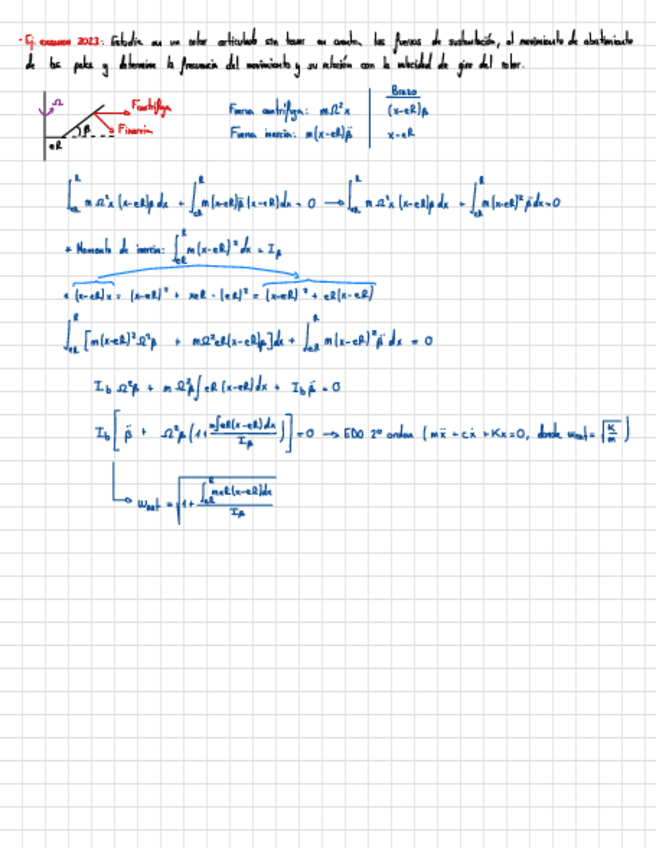 - Ej. examen 2023: Estudie en un rotor articulado sin tener en cuenta las fuerzas de sustentación, el movimiento de abatimiento
de las palas y determine la frecuencia del movimiento y su relación con la velocidad de giro del rotor.
Ω
Fcentrífuga
Finercia
β
eR
Brazo
Fuerza centrífuga: mΩ²x | (x-eR)β
Fuerza inercia: m(x-eR)β̈ | x-eR
∫_{eR}^{R} m Ω²x (x-eR)β dx + ∫_{eR}^{R} m(x-eR)β̈ (x-eR)dx = 0 → ∫_{eR}^{R} m Ω²x (x-eR)β dx + ∫_{eR}^{R} m(x-eR)² β̈ dx = 0
* Momento de inercia: ∫_{eR}^{R} m(x-eR)² dx = I_β
* (x-eR)x = (x-eR)² + xeR - (eR)² = (x-eR)² + eR(x-eR)
∫_{eR}^{R} [m(x-eR)² Ω²β + mΩ²eR(x-eR)β]dx + ∫_{eR}^{R} m(x-eR)² β̈ dx = 0
I_b Ω²β + m Ω²β ∫ eR (x-eR)dx + I_b β̈ = 0
I_b [ β̈ + Ω²β (1 + m∫eR(x-eR)dx / I_β ) ] = 0 → EDO 2º orden ( mẍ + cẋ + Kx = 0, donde ωnat = √(K/m) )
ωnat = √(1 + ∫_{eR}^{R} meR(x-eR)dx / I_β)